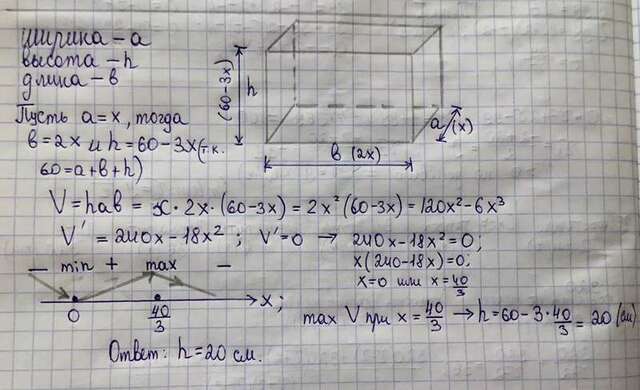 ширина – a
высота – h
длина – в
Пусть a=x, тогда
в=2x и h=60-3x(т.к.
60=a+в+h)
(60-3x)
h
a (x)
в (2x)
V=haв = x·2x·(60-3x)=2x²(60-3x)=120x²-6x³
V'=240x-18x² ; V'=0 → 240x-18x²=0;
x(240-18x)=0;
x=0 или x=40/3
– min + max –
0 40/3 x;
max V при x=40/3 → h=60-3·40/3=20 (см)
Ответ: h=20 см.